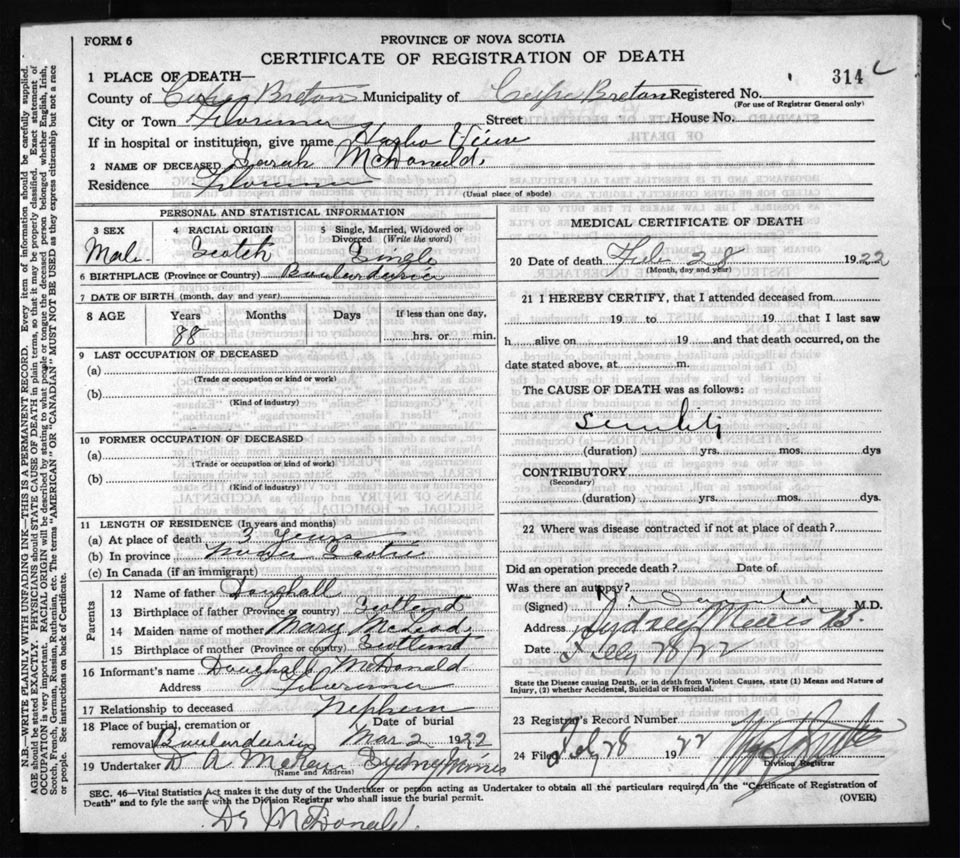 FORM 6
PROVINCE OF NOVA SCOTIA
CERTIFICATE OF REGISTRATION OF DEATH
314
1 PLACE OF DEATH—
County of Cape Breton Municipality of Cape Breton Registered No.
(For use of Registrar General only)
City or Town Street House No.
If in hospital or institution, give name View
2 NAME OF DECEASED Sarah McDonald
Residence
(Usual place of abode)
PERSONAL AND STATISTICAL INFORMATION
3 SEX 4 RACIAL ORIGIN 5 Single, Married, Widowed or Divorced (Write the word)
Male Scotch Single
6 BIRTHPLACE (Province or Country) Boularderie
7 DATE OF BIRTH (month, day and year)
8 AGE Years Months Days If less than one day,
88 hrs. or min.
9 LAST OCCUPATION OF DECEASED
(a)
(Trade or occupation or kind or work)
(b)
(Kind of industry)
10 FORMER OCCUPATION OF DECEASED
(a)
(Trade or occupation or kind or work)
(b)
(Kind of industry)
11 LENGTH OF RESIDENCE (In years and months)
(a) At place of death 3 years
(b) In province Nova Scotia
(c) In Canada (if an immigrant)
Parents
12 Name of father
13 Birthplace of father (Province or country) Scotland
14 Maiden name of mother Mary McLeod
15 Birthplace of mother (Province or country) Scotland
16 Informant's name McDonald
Address
17 Relationship to deceased Nephew
18 Place of burial, cremation or removal Boularderie Date of burial Mar 2 1922
19 Undertaker D A Sydney Mines
(Name and Address)
MEDICAL CERTIFICATE OF DEATH
20 Date of death Feb 28 1922
(Month, day and year)
21 I HEREBY CERTIFY, that I attended deceased from
19 to 19 that I last saw
h alive on 19 and that death occurred, on the
date stated above, at m.
The CAUSE OF DEATH was as follows:
Senility
(duration) yrs. mos. dys
CONTRIBUTORY
(Secondary)
(duration) yrs. mos. dys.
22 Where was disease contracted if not at place of death?
Did an operation precede death? Date of
Was there an autopsy?
(Signed) M.D.
Address Sydney Mines
Date 28/22
State the Disease causing Death, or in death from Violent Causes, state (1) Means and Nature of Injury, (2) whether Accidental, Suicidal or Homicidal.
23 Registrar's Record Number
24 Filed 28 1922
Division Registrar
SEC. 46—Vital Statistics Act makes it the duty of the Undertaker or person acting as Undertaker to obtain all the particulars required in the "Certificate of Registration of
Death" and to fyle the same with the Division Registrar who shall issue the burial permit.
(OVER)
Dr McDonald.
N.B.—WRITE PLAINLY WITH UNFADING INK—THIS IS A PERMANENT RECORD. Every item of information should be carefully supplied.
AGE should be stated EXACTLY. PHYSICIANS should STATE CAUSE OF DEATH in plain terms, so that it may be properly classified. Exact statement of
OCCUPATION is very important. RACIAL ORIGIN will be described by stating to what people or tongue the deceased person belonged whether English, Irish,
Scotch, French, German, Russian, Ruthenian, etc. The terms "AMERICAN" OR "CANADIAN" MUST NOT BE USED as they express citizenship but not a race
or people. See instructions on back of Certificate.